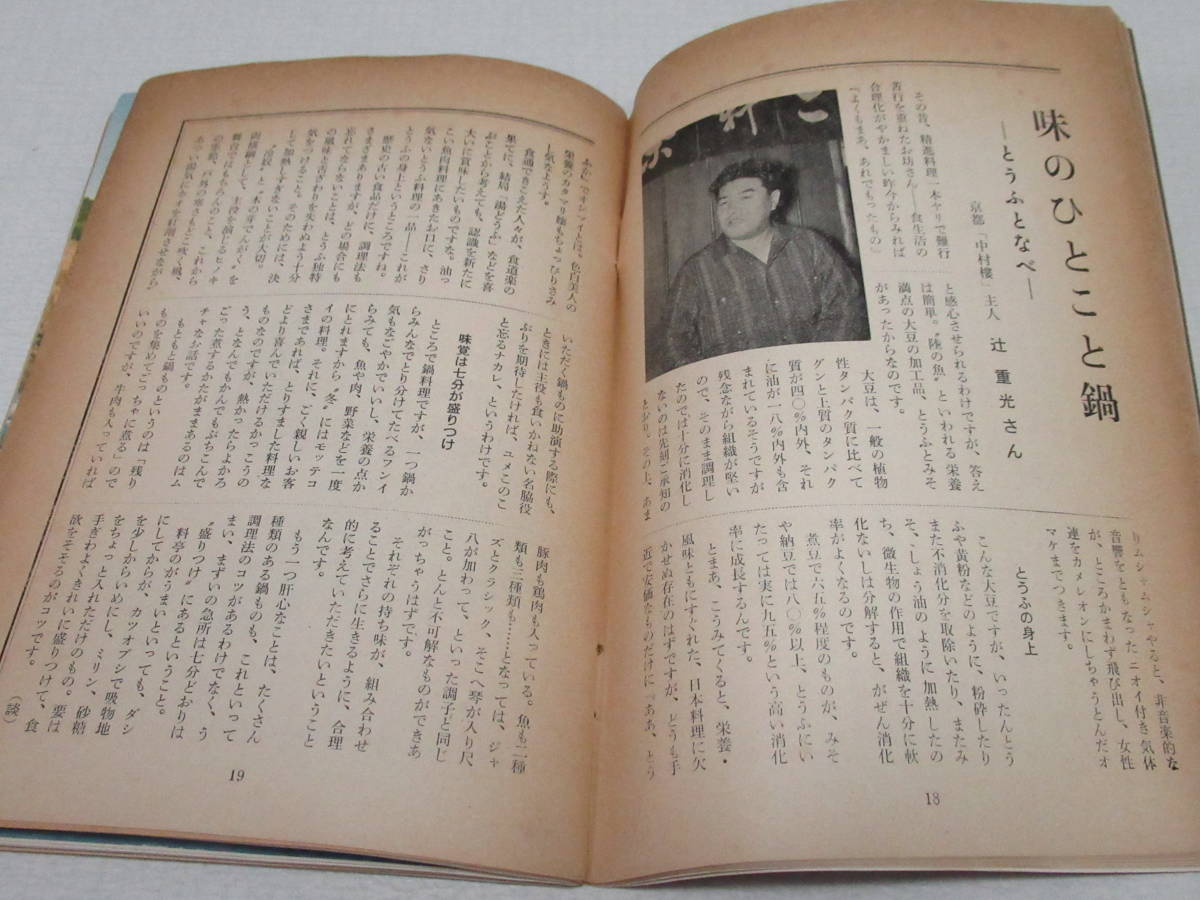 味のひとこと鍋
―とうふとなべ―
京都「中村樓」主人　辻　重光さん
その昔、精進料理一本ヤリで難行
苦行を重ねたお坊さん――食生活の
合理化がやかましい昨今からみれば
『よくもまあ、あれでもったもの』
と感心させられるわけですが、答え
は簡単。〝陸の魚〟といわれる栄養
満点の大豆の加工品、とうふとみそ
があったからなのです。
大豆は、一般の植物
性タンパク質に比べて
グンと上質のタンパク
質が四〇％内外、それ
に油が一八％内外も含
まれているそうですが
残念ながら組織が堅い
ので、そのまま調理し
たのでは十分に消化し
ないのは先刻ご承知の
とおり。その上、あま
りムシャムシャやると、非音楽的な
音響をともなったニオイ付き気体
が、ところかまわず飛び出し、女性
連をカメレオンにしちゃうとんだオ
マケまでつきます。
とうふの身上
こんな大豆ですが、いったんとう
ふや黄粉などのように、粉砕したり
また不消化分を取除いたり、またみ
そ、しょう油のように加熱したの
ち、微生物の作用で組織を十分に軟
化ないしは分解すると、がぜん消化
率がよくなるのです。
煮豆で六五％程度のものが、みそ
や納豆では八〇％以上、とうふにい
たっては実に九五％という高い消化
率に成長するんです。
とまあ、こうみてくると、栄養・
風味ともにすぐれた、日本料理に欠
かせぬ存在のはずですが、どうも手
近で安価なものだけに『ああ、とう
18
ふか』でオシマイとは、色白美人の
栄養のカタマリ嬢もちょっぴりさみ
し気なようす。
食通できこえた人々が、食道楽の
果てに、結局『湯どうふ』などを喜
ぶことから考えても、認識を新たに
大いに賞味したいものですな。油っ
こい魚肉料理にあきたお口に、さり
気ないとうふ料理の一品――これが
とうふの身上というところですね。
歴史の古い食品だけに、調理法も
さまざまありますが、どの場合にも
忘れてならないことは、とうふ独特
の風味と舌ざわりを失わぬよう十分
気をつけること。そのためには、決
して加熱しすぎないことが大切。
〝田楽〟と〝木の芽でんがく〟を
両横綱として、主役を演じるヒノキ
舞台ではもちろんのこと、これから
の季節、戸外の寒さよそに吹く風、
あつい湯気にホオを紅潮させながら
いただく鍋ものに助演する際にも、
ときには主役も食いかねない名脇役
ぶりを期待したければ、ユメこのこ
と忘るナカレ、というわけです。
味覚は七分が盛りつけ
ところで鍋料理ですが、一つ鍋か
らみんなでとり分けてたべるフンイ
気もなごやかでいいし、栄養の点か
らみても、魚や肉、野菜などを一度
にとれますから〝冬〟にはモッテコ
イの料理。それに、ごく親しいお客
さまであれば、とりすました料理な
どより喜んでいただけるかっこうの
ものなのですが、熱かったらよかろ
う、となんでもかんでもぶちこんで
ごった煮するかたがままあるのはム
チャな話です。
もともと鍋ものというのは「残り
ものを集めてごっちゃに煮る」ので
いいのですが、牛肉も入っていれば
豚肉も鶏肉も入っている。魚も二種
類も三種類も……となっては、ジャ
ズとクラシック、そこへ琴が入り尺
八が加わって、といった調子と同じ
こと。とんと不可解なものができあ
がっちゃうはずです。
それぞれの持ち味が、組み合わせ
ることでさらに生きるように、合理
的に考えていただきたいということ
なんです。
もう一つ肝心なことは、たくさん
種類のある鍋ものも、これといって
調理法のコツがあるわけでなく、う
まい、まずいの急所は七分どおりは
〝盛りつけ〟にあるということ。
料亭のがうまいといっても、ダシ
にしてからが、カツオブシで吸物地
を少しからいめにし、ミリン、砂糖
をちょっと入れただけのもの。要は
手ぎわよくきれいに盛りつけて、食
欲をそそるのがコツです。（談）
19